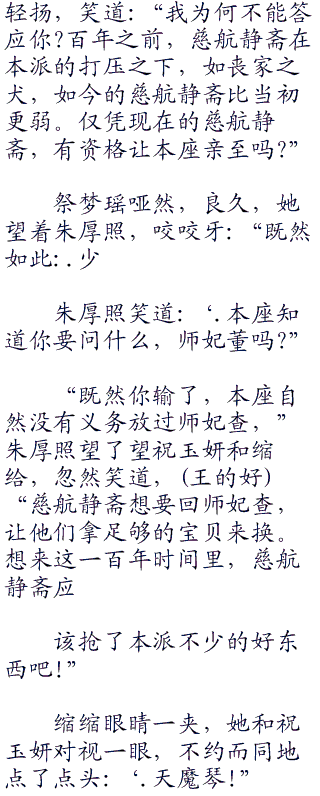 轻扬，笑道：“我为何不能答
应你?百年之前，慈航静斋在
本派的打压之下，如丧家之
犬，如今的慈航静斋比当初
更弱。仅凭现在的慈航静
斋，有资格让本座亲至吗?”
祭梦瑶哑然，良久，她
望着朱厚照，咬咬牙：“既然
如此:．少
朱厚照笑道：‘．本座知
道你要问什么，师妃董吗?”
“既然你输了，本座自
然没有义务放过师妃查，”
朱厚照望了望祝玉妍和缩
给，忽然笑道，(王的好)
“慈航静斋想要回师妃查，
让他们拿足够的宝贝来换。
想来这一百年时间里，慈航
静斋应
该抢了本派不少的好东
西吧!”
缩缩眼睛一夹，她和祝
玉妍对视一眼，不约而同地
点了点头：‘．天魔琴!”